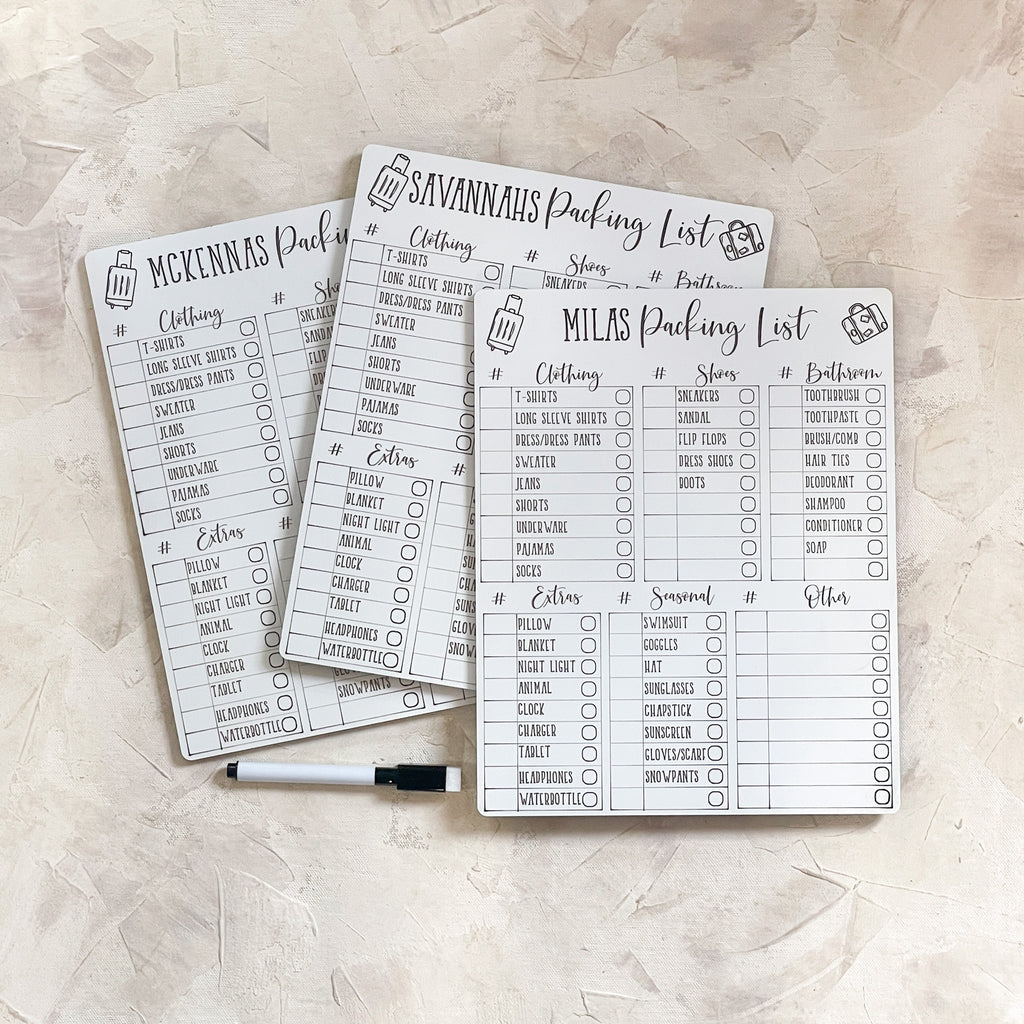 MCKENNAS Packi
# Clothing
T-SHIRTS
LONG SLEEVE SHIRTS
DRESS/DRESS PANTS
SWEATER
JEANS
SHORTS
UNDERWARE
PAJAMAS
SOCKS
# Sho
SNEAKER
SANDA
FLIP
DR
# Extras
PILLOW
BLANKET
NIGHT LIGHT
ANIMAL
CLOCK
CHARGER
TABLET
HEADPHONES
WATERBOTTLE
#
SNOWPANTS
SAVANNAHS Packing List
# Clothing
T-SHIRTS
LONG SLEEVE SHIRTS
DRESS/DRESS PANTS
SWEATER
JEANS
SHORTS
UNDERWARE
PAJAMAS
SOCKS
# Shoes
SNEAKERS
# Bathroom
# Extras
PILLOW
BLANKET
NIGHT LIGHT
ANIMAL
CLOCK
CHARGER
TABLET
HEADPHONES
WATERBOTTLE
#
SUN
CHA
SUNS
GLOV
SNOW
MILAS Packing List
# Clothing
T-SHIRTS
LONG SLEEVE SHIRTS
DRESS/DRESS PANTS
SWEATER
JEANS
SHORTS
UNDERWARE
PAJAMAS
SOCKS
# Shoes
SNEAKERS
SANDAL
FLIP FLOPS
DRESS SHOES
BOOTS
# Bathroom
TOOTHBRUSH
TOOTHPASTE
BRUSH/COMB
HAIR TIES
DEODORANT
SHAMPOO
CONDITIONER
SOAP
# Extras
PILLOW
BLANKET
NIGHT LIGHT
ANIMAL
CLOCK
CHARGER
TABLET
HEADPHONES
WATERBOTTLE
# Seasonal
SWIMSUIT
GOGGLES
HAT
SUNGLASSES
CHAPSTICK
SUNSCREEN
GLOVES/SCARF
SNOWPANTS
# Other